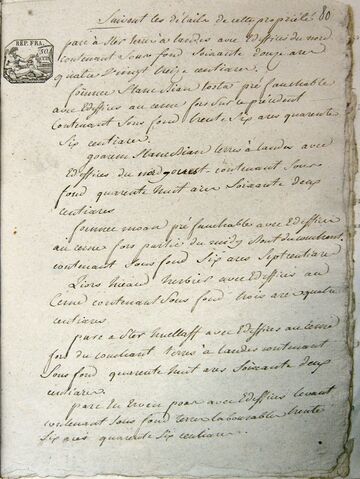 Suivent les détails de cette propriété 80
REP. FRA.
parc à Ster terre à landes avec Edifices du nord
contenant Sous fond Soixante douze ares
quatre Vingt treize centiares.
fouënec Stanc Dian fauchable
avec Edifices au cerne fors Sur le précédent
Contenant Sous fond trente Six ares quarente
Six centiares.
goarem Stanc Dian terre à landes avec
Edifices du nord contenant Sous
fond quarente huit ares Soixante deux
centiares
fouënec pré fauchable avec Edifices
au cerne fors partie du midy Nord du couchant.
contenant Sous fond Six ares Sept centiares
Liors avec Edifices au
Cerne contenant Sous fond trois ares quatre
centiares
parc a Ster avec Edifices au cerne
fors du couchant terre à landes contenant
Sous fond quarente huit ares Soixante deux
centiares.
parc avec Edifices levant
contenant Sous fond terre labourable trente
Six ares quarente Six centiares.